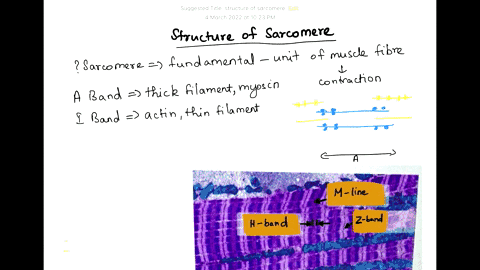 Suggested Title: structure of sarcomere
4 March 2022 at 10:23 PM
Structure of Sarcomere
? Sarcomere => fundamental - unit of muscle fibre
↓
contraction
A Band => thick filament, myosin
I Band => actin, thin filament
A
M-line
H-band
Z-band